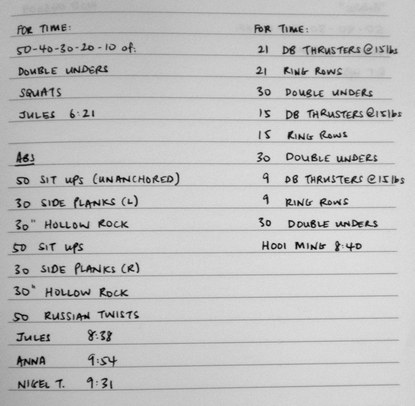 FOR TIME:
50-40-30-20-10 of:
DOUBLE UNDERS
SQUATS
JULES 6:21
ABS
50 SIT UPS (UNANCHORED)
30 SIDE PLANKS (L)
30" HOLLOW ROCK
50 SIT UPS
30 SIDE PLANKS (R)
30" HOLLOW ROCK
50 RUSSIAN TWISTS
JULES 8:38
ANNA 9:54
NIGEL T. 9:31
FOR TIME:
21 DB THRUSTERS @ 15lbs
21 RING ROWS
30 DOUBLE UNDERS
15 DB THRUSTERS @ 15lbs
15 RING ROWS
30 DOUBLE UNDERS
9 DB THRUSTERS @ 15lbs
9 RING ROWS
30 DOUBLE UNDERS
HOOI MING 8:40